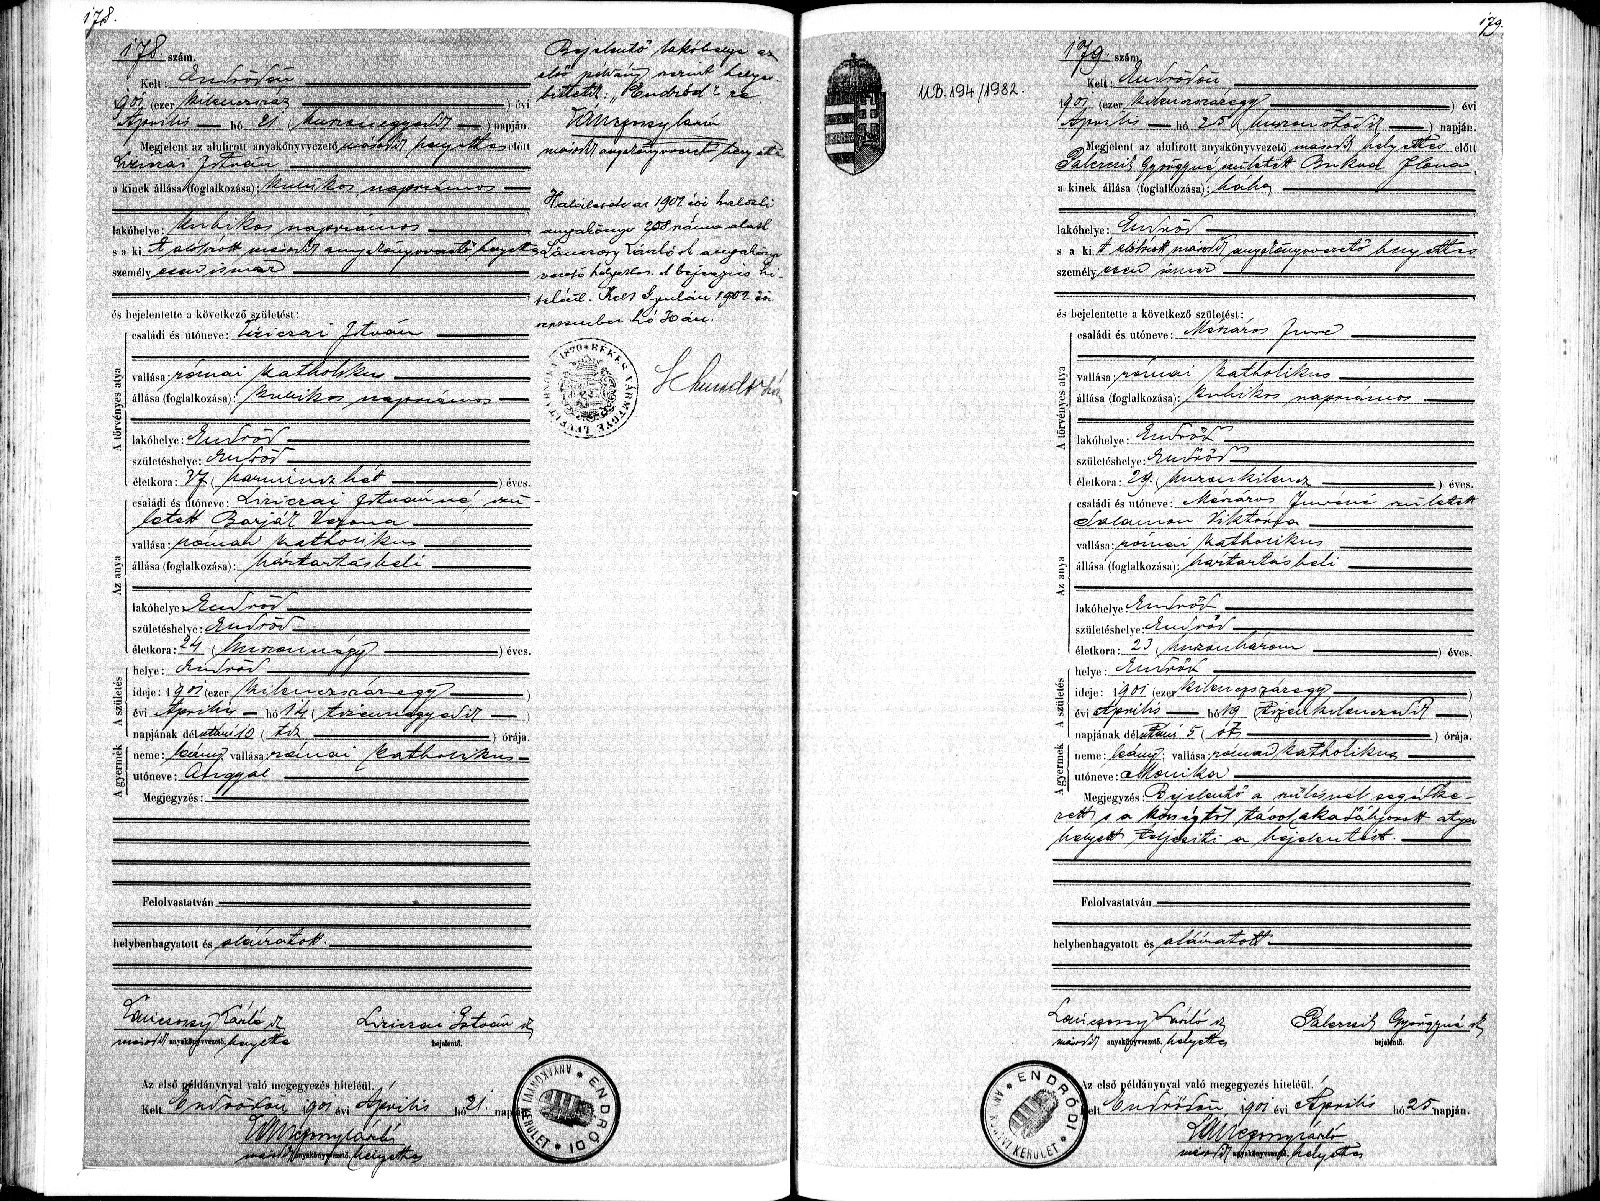 178.
178. szám.
Kelt: Endrődön
1901 (ezer kilenczszáz ) évi
Április hó 21 (huszonegyedik ) napján.
Megjelent az alulirott anyakönyvvezető második helyettes előtt
István
a kinek állása (foglalkozása): kubikos napszámos
lakóhelye: kubikos napszámos
s a ki A alulirott másodk anyakönyvvezető helyettes
személyesen ismer
és bejelentette a következő születést:
A törvényes atya
családi és utóneve: Liziczai István
vallása: római katholikus
állása (foglalkozása): kubikos napszámos
lakóhelye: Endrőd
születéshelye: Endrőd
életkora: 37 (harminczhét ) éves.
Az anya
családi és utóneve: Liziczai Istvánné, szü-
letett Verona
vallása: római katholikus
állása (foglalkozása): háztartásbeli
lakóhelye: Endrőd
születéshelye: Endrőd
életkora: 24 (huszonnégy ) éves.
A születés
helye: Endrőd
ideje: 1901 (ezer kilenczszázegy )
évi Április hó 14 (tizennegyedik )
napjának délutáni 10 (tiz ) órája.
A gyermek
neme: leány; vallása: római katholikus
utóneve: Angyal
Megjegyzés:
Felolvastatván
helybenhagyatott és aláiratott.
Lánczony Károly sk Liziczai István sk
másodk anyakönyvvezető, helyettes bejelentő.
Az első példánynyal való megegyezés hiteléül.
Kelt Endrődön 1901 évi Április hó 21. napján
másodk anyakönyvvezető helyettes
ENDRŐDI ANYAKÖNYVI KERÜLET
Bejelentő lakóhelye az
első példány szerint helyes-
bittetik: „Endrőd" re
másodk anyakönyvvezető helyettes
Halálesete az 1901 évi halotti
anyakönyv 258 száma alatt
Károly sk anyakönyv-
vezető helyettes. A bejegyzés hi-
teléül. Kelt Gyulán 1901 évi
szeptember hó án.
1870 BÉKÉS VÁRMEGYE LEVÉLTÁRA
179.
U.B. 194/1982.
179. szám.
Kelt: Endrődön
1901 (ezer kilenczszázegy ) évi
Április hó 25 (huszonötödik ) napján.
Megjelent az alulirott anyakönyvvezető másodk helyettes előtt
Palercsik Györgyné született Ilona,
a kinek állása (foglalkozása): bába
lakóhelye: Endrőd
s a ki A alulirott másodk anyakönyvvezető helyettes
személyesen ismer
és bejelentette a következő születést:
A törvényes atya
családi és utóneve: Mészáros Imre
vallása: római katholikus
állása (foglalkozása): kubikos napszámos
lakóhelye: Endrőd
születéshelye: Endrőd
életkora: 29. (huszonkilencz ) éves.
Az anya
családi és utóneve: Mészáros Imréné született
Salamon Viktória
vallása: római katholikus
állása (foglalkozása): háztartásbeli
lakóhelye: Endrőd
születéshelye: Endrőd
életkora: 23 (huszonhárom ) éves.
A születés
helye: Endrőd
ideje: 1901 (ezer kilenczszázegy )
évi Április hó 19 (tizenkilenczedik )
napjának délutáni 5 (öt ) órája.
A gyermek
neme: leány; vallása: római katholikus
utóneve: Monika
Megjegyzés: Bejelentő a szülésnél segédke-
zett s a községtől távol akadályozott atya
helyett teljesiti a bejelentést.
Felolvastatván
helybenhagyatott és aláiratott.
Lánczony Károly sk Palercsik Györgyné sk
másodk anyakönyvvezető, helyettes bejelentő.
Az első példánynyal való megegyezés hiteléül.
Kelt Endrődön 1901 évi Április hó 25 napján.
másodk anyakönyvvezető helyettes
ENDRŐDI ANYAKÖNYVI KERÜLET